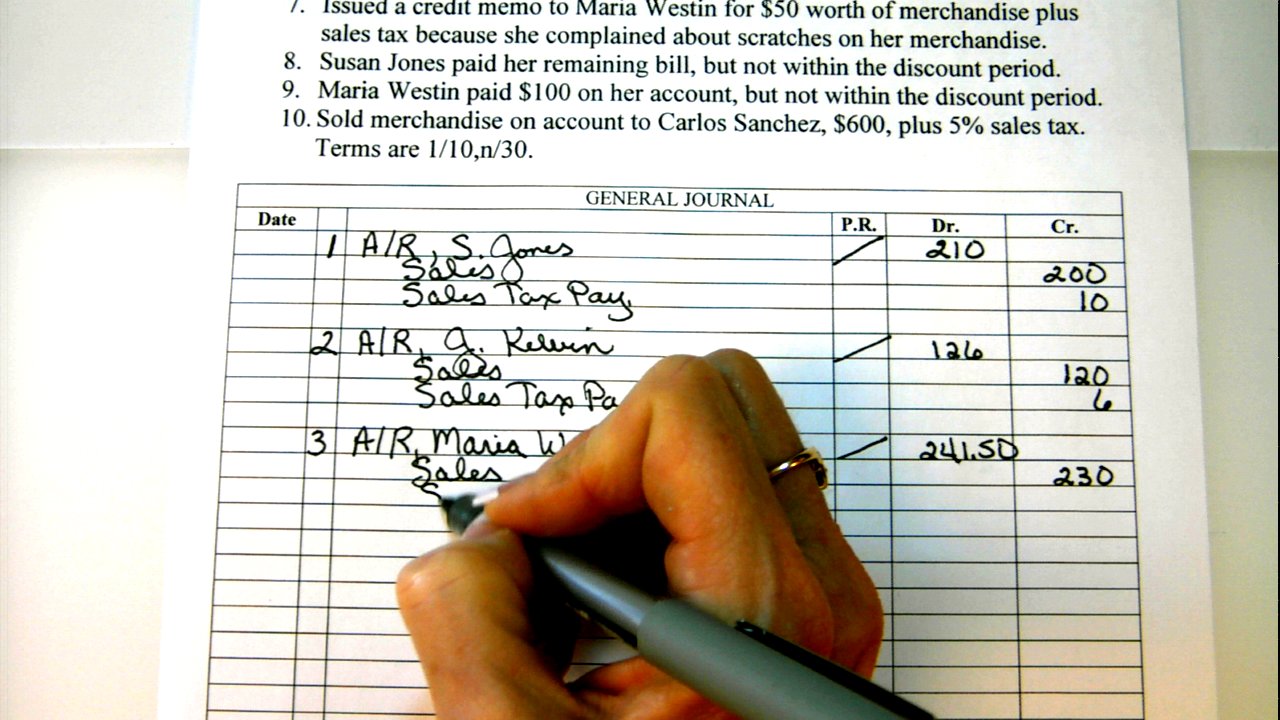 7. Issued a credit memo to Maria Westin for $50 worth of merchandise plus
sales tax because she complained about scratches on her merchandise.
8. Susan Jones paid her remaining bill, but not within the discount period.
9. Maria Westin paid $100 on her account, but not within the discount period.
10. Sold merchandise on account to Carlos Sanchez, $600, plus 5% sales tax.
Terms are 1/10,n/30.
GENERAL JOURNAL
Date P.R. Dr. Cr.
1 A/R, S. Jones 210
Sales 200
Sales Tax Pay. 10
2 A/R, A. Kelvin 126
Sales 120
Sales Tax Pa 6
3 A/R, Maria W 241.50
Sales 230
S